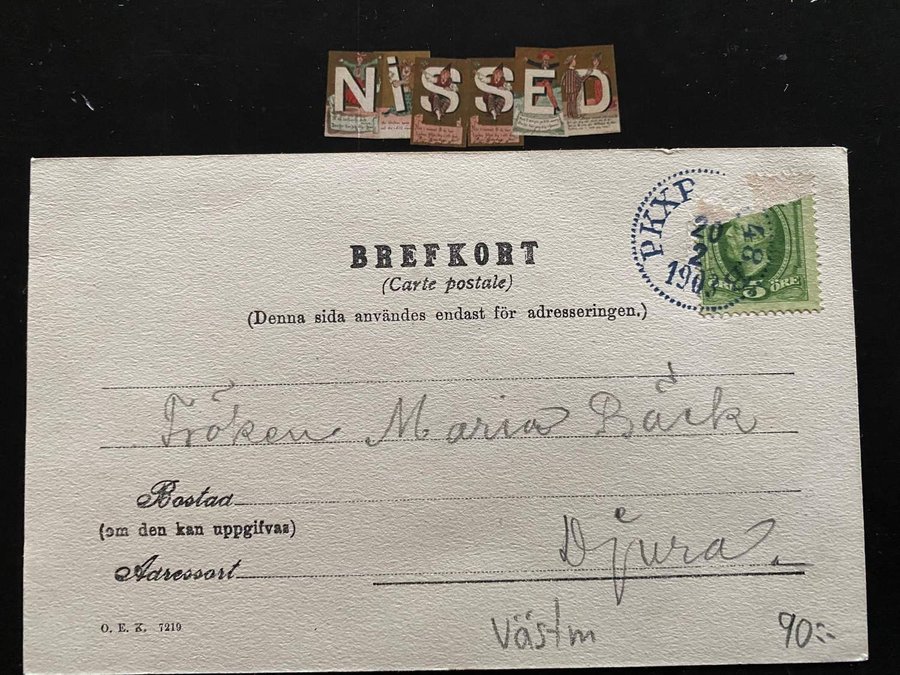 NiSSED
PKXP
20
2
1903
48
5 ÖRE
BREFKORT
(Carte postale)
(Denna sida användes endast för adresseringen.)
Fröken Maria Bäck
Bostad
(om den kan uppgifvas)
Djura.
Adressort
O. E. K. 7219
Västm
90:-